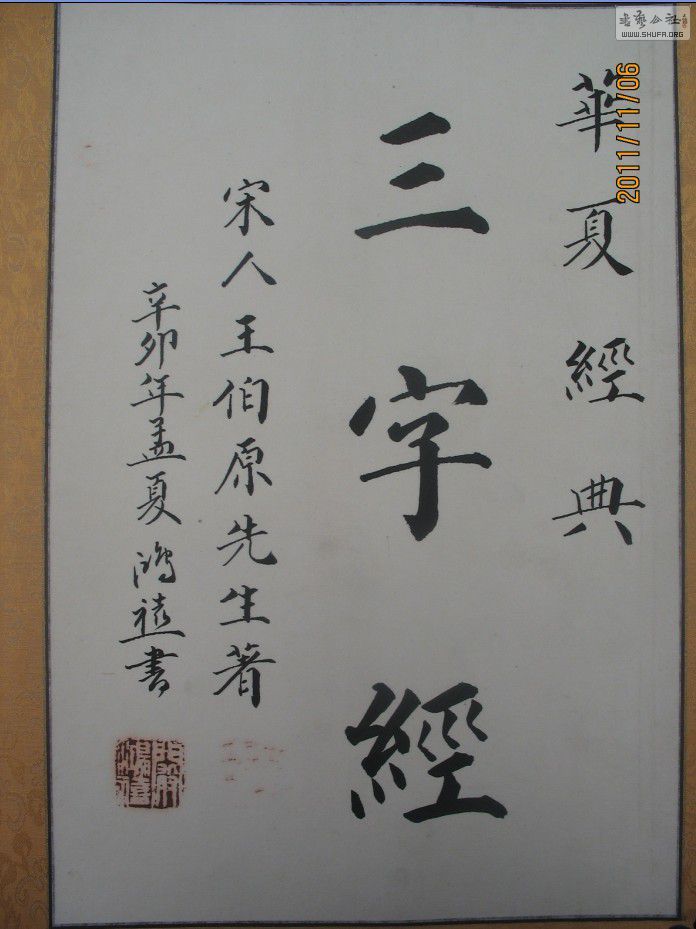 華夏經典
三字經
宋人王伯原先生著
辛卯年孟夏鴻禧書
2011/11/06
書藝公社
WWW.SHUFA.ORG